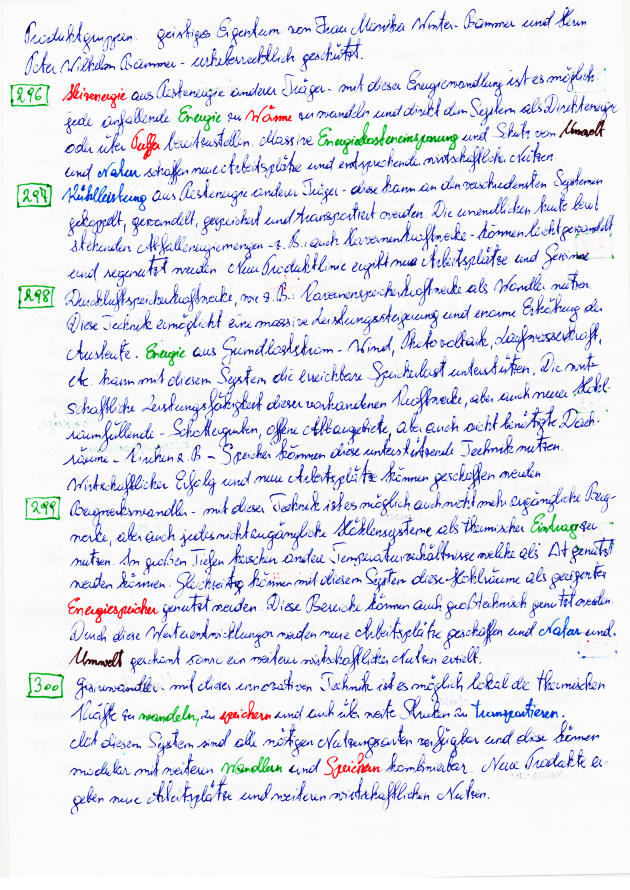 Produktgruppen: geistiges Eigentum von Frau Monika Winter-Bammer und Herrn
Peter Wilhelm Bammer - urheberrechtlich geschützt.
296 Heizenergie aus Restenergie anderer Träger - mit dieser Energiewandlung ist es möglich
jede anfallende Energie zu Wärme zu wandeln und direkt dem System als Direktenergie
oder über Puffer bereitzustellen. Massive Energiekosteneinsparung und Schutz von Umwelt
und Natur schaffen neue Arbeitsplätze und entsprechende wirtschaftlicher Nutzen.
297 Kühlleistung aus Restenergie anderer Träger - diese kann an den verschiedensten Systemen
gekoppelt, gewandelt, gespeichert und transportiert werden. Die unendlichen heute bereit
stehenden Abfallenergiemengen - z.B.: auch Kavernenkraftwerke - können leicht gewandelt
und regenutzt werden. Neue Produktlinie ergibt neue Arbeitsplätze und Gewinne
298 Druckluftspeicherkraftwerke, wie z.B.: Kavernenspeicherkraftwerke als Wandler nutzen.
Diese Technik ermöglicht eine massive Leistungssteigerung und enorme Erhöhung der
Ausbeute. Energie aus Grundlaststrom - Wind, Photovoltaik, Laufwasserkraft,
etc. kann mit diesem System die erreichbare Speicherlast unterstützen. Die wirt-
schaftliche Leistungsfähigkeit dieser vorhandenen Kraftwerke, aber auch neuer Hohl-
raumfüllende - Schottergruben, offene Abbaugebiete, aber auch nicht benötigte Dach-
räume - Kirchen z.B - Speicher können diese unterstützende Technik nutzen.
Wirtschaftlicher Erfolg und neue Arbeitsplätze können geschaffen werden
299 Bergwerkswandler - mit dieser Technik ist es möglich auch nicht mehr zugängliche Berg-
werke, aber auch jedes nicht zugängliche Höhlensysteme als thermischer Eintrag zu
nutzen. In großen Tiefen herrschen andere Temperaturverhältnisse welche als Δt genutzt
werden können. Gleichzeitig können mit diesem System diese Hohlräume als geeigneter
Energiespeicher genutzt werden. Diese Bereiche können auch großtechnisch genutzt werden.
Durch diese Weiterentwicklungen werden neue Arbeitsplätze geschaffen und Natur und
Umwelt geschont sowie ein weiterer wirtschaftlicher Nutzen erzielt.
300 mit dieser innovativen Technik ist es möglich lokal die thermischen
Kräfte zu wandeln, zu speichern und auch über weite Strecken zu transportieren.
Mit diesem System sind alle nötigen Nutzungsarten verfügbar und diese können
modular mit weiteren Wandlern und Speichern kombinierbar. Neue Produkte er-
geben neue Arbeitsplätze und weiteren wirtschaftlichen Nutzen.